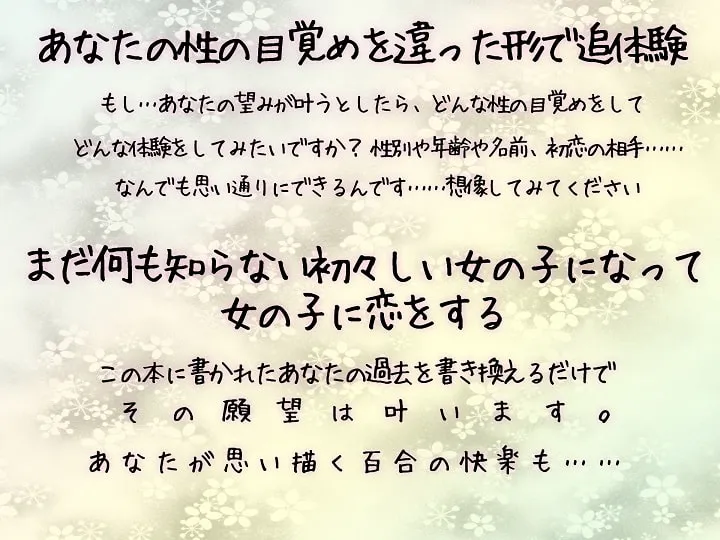 あなたの性の目覚めを違った形で追体験
もし…あなたの望みが叶うとしたら、どんな性の目覚めをして
どんな体験をしてみたいですか？性別や年齢や名前、初恋の相手……
なんでも思い通りにできるんです……想像してみてください
まだ何も知らない初々しい女の子になって
女の子に恋をする
この本に書かれたあなたの過去を書き換えるだけで
その願望は叶います。
あなたが思い描く百合の快楽も……